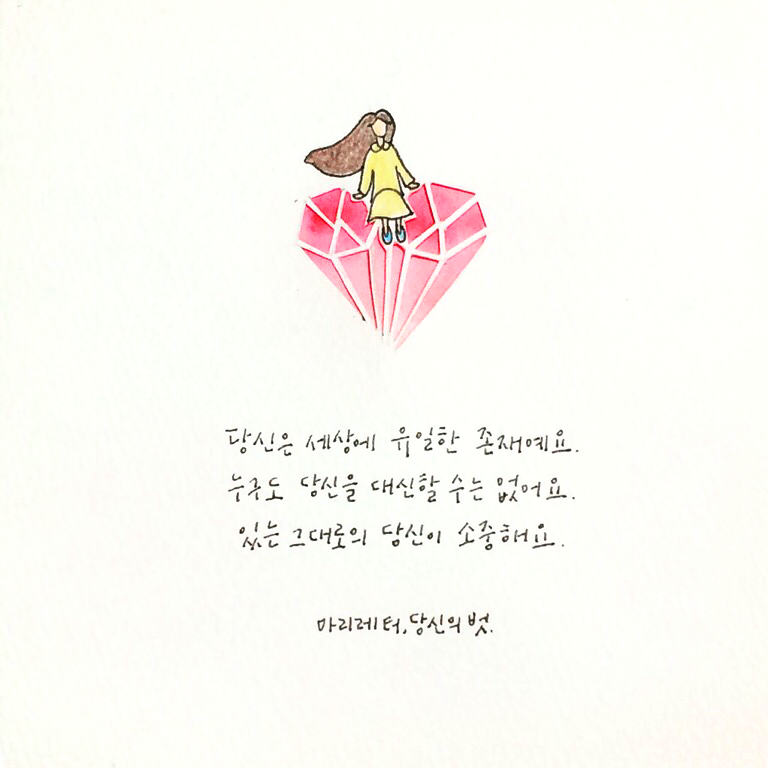 당신은 세상에 유일한 존재예요.
누구도 당신을 대신할 수는 없어요.
있는 그대로의 당신이 소중해요.
마리레터, 당신의 벗.